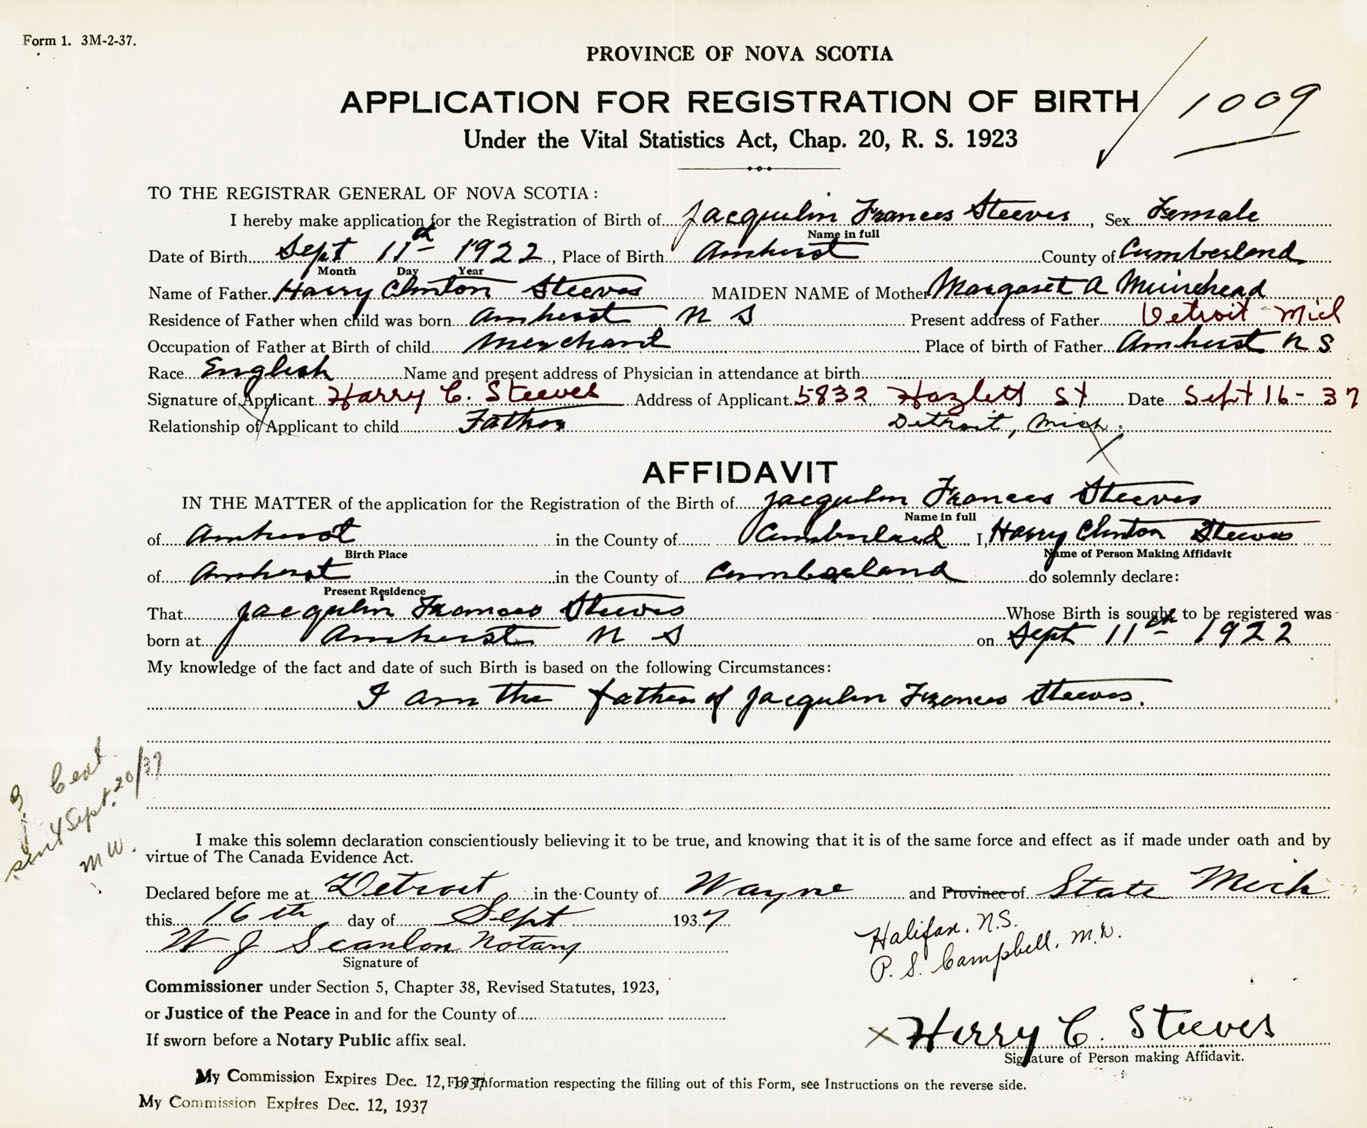 Form 1. 3M-2-37.
PROVINCE OF NOVA SCOTIA
APPLICATION FOR REGISTRATION OF BIRTH
1009
Under the Vital Statistics Act, Chap. 20, R. S. 1923
TO THE REGISTRAR GENERAL OF NOVA SCOTIA:
I hereby make application for the Registration of Birth of Jacqulin Frances Steeves, Sex Female
Name in full
Date of Birth Sept 11th 1922, Place of Birth Amherst County of Cumberland
Month Day Year
Name of Father Harry Clinton Steeves MAIDEN NAME of Mother Margaret A Muirhead
Residence of Father when child was born Amherst N S Present address of Father Detroit Mich
Occupation of Father at Birth of child Merchant Place of birth of Father Amherst N S
Race English Name and present address of Physician in attendance at birth
Signature of Applicant Harry C. Steeves Address of Applicant 5832 Hazlett St Date Sept 16-37
Relationship of Applicant to child Father Detroit, Mich.
AFFIDAVIT
IN THE MATTER of the application for the Registration of the Birth of Jacqulin Frances Steeves
Name in full
of Amherst in the County of Cumberland I, Harry Clinton Steeves
Birth Place Name of Person Making Affidavit
of Amherst in the County of Cumberland do solemnly declare:
Present Residence
That Jacqulin Frances Steeves Whose Birth is sought to be registered was
born at Amherst N S on Sept 11th 1922
My knowledge of the fact and date of such Birth is based on the following Circumstances:
I am the father of Jacqulin Frances Steeves.
Cert
sent Sept. 20/37
M W.
I make this solemn declaration conscientiously believing it to be true, and knowing that it is of the same force and effect as if made under oath and by
virtue of The Canada Evidence Act.
Declared before me at Detroit in the County of Wayne and Province of State Mich
this 16th day of Sept 1937
W J Scanlon Notary
Signature of
Halifax, N.S.
P. S. Campbell, M.D.
Commissioner under Section 5, Chapter 38, Revised Statutes, 1923,
or Justice of the Peace in and for the County of
If sworn before a Notary Public affix seal.
X Harry C. Steeves
Signature of Person making Affidavit.
My Commission Expires Dec. 12, 1937
For information respecting the filling out of this Form, see Instructions on the reverse side.
My Commission Expires Dec. 12, 1937